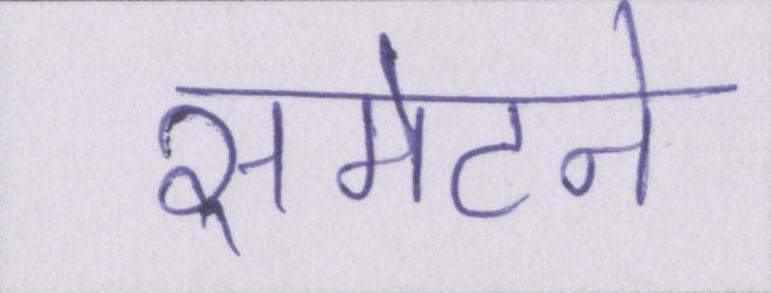 समेटने